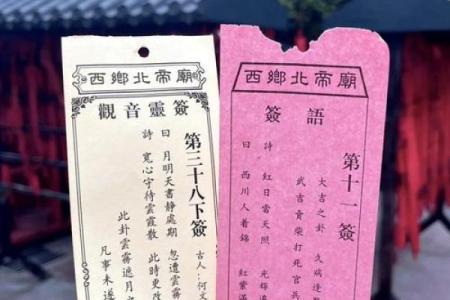 西鄉北帝廟
觀音靈簽
第三十八下簽
古人：何文
曰 月明天書靜處期 忽遭雲霧
詩 寬心守待雲霞散 此時更改
此卦雲霧遮月
凡事未遂
西鄉北帝廟
簽語
第十一簽
大吉之卦 久病逢
武吉賣柴打死官兵
詩 紅日當天照 光輝
曰 西川人著錦 紅紫滿